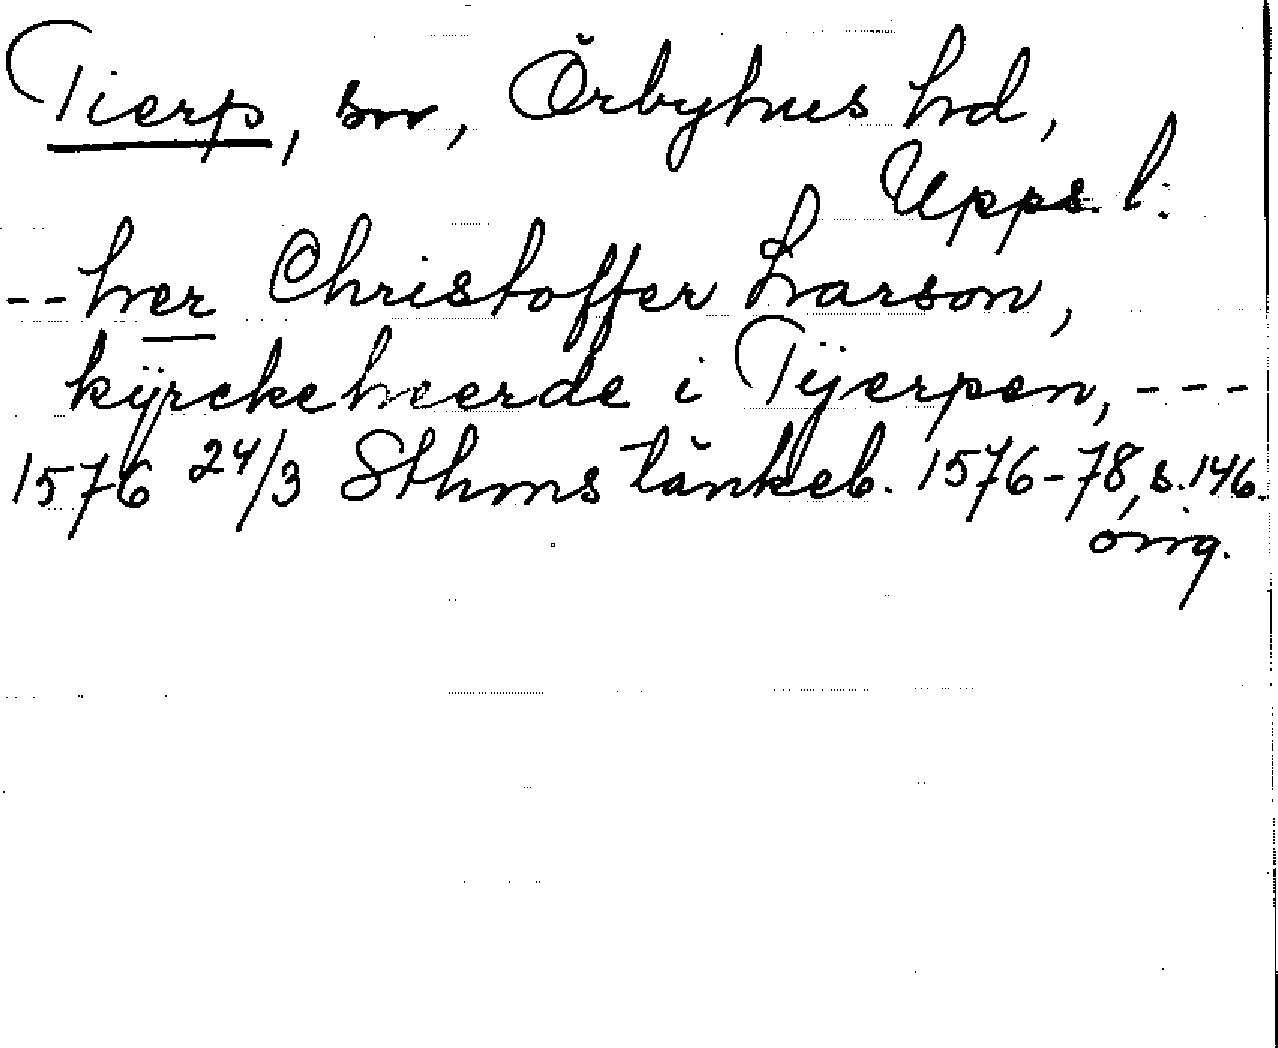 Tierp, sn, Örbyhus hd,
Upps. l:
-- her Christoffer Larson,
kÿrckeheerde i Tÿerpen, ---
1576 24/3 Sthms tänkeb. 1576-78, s. 146.
orig.